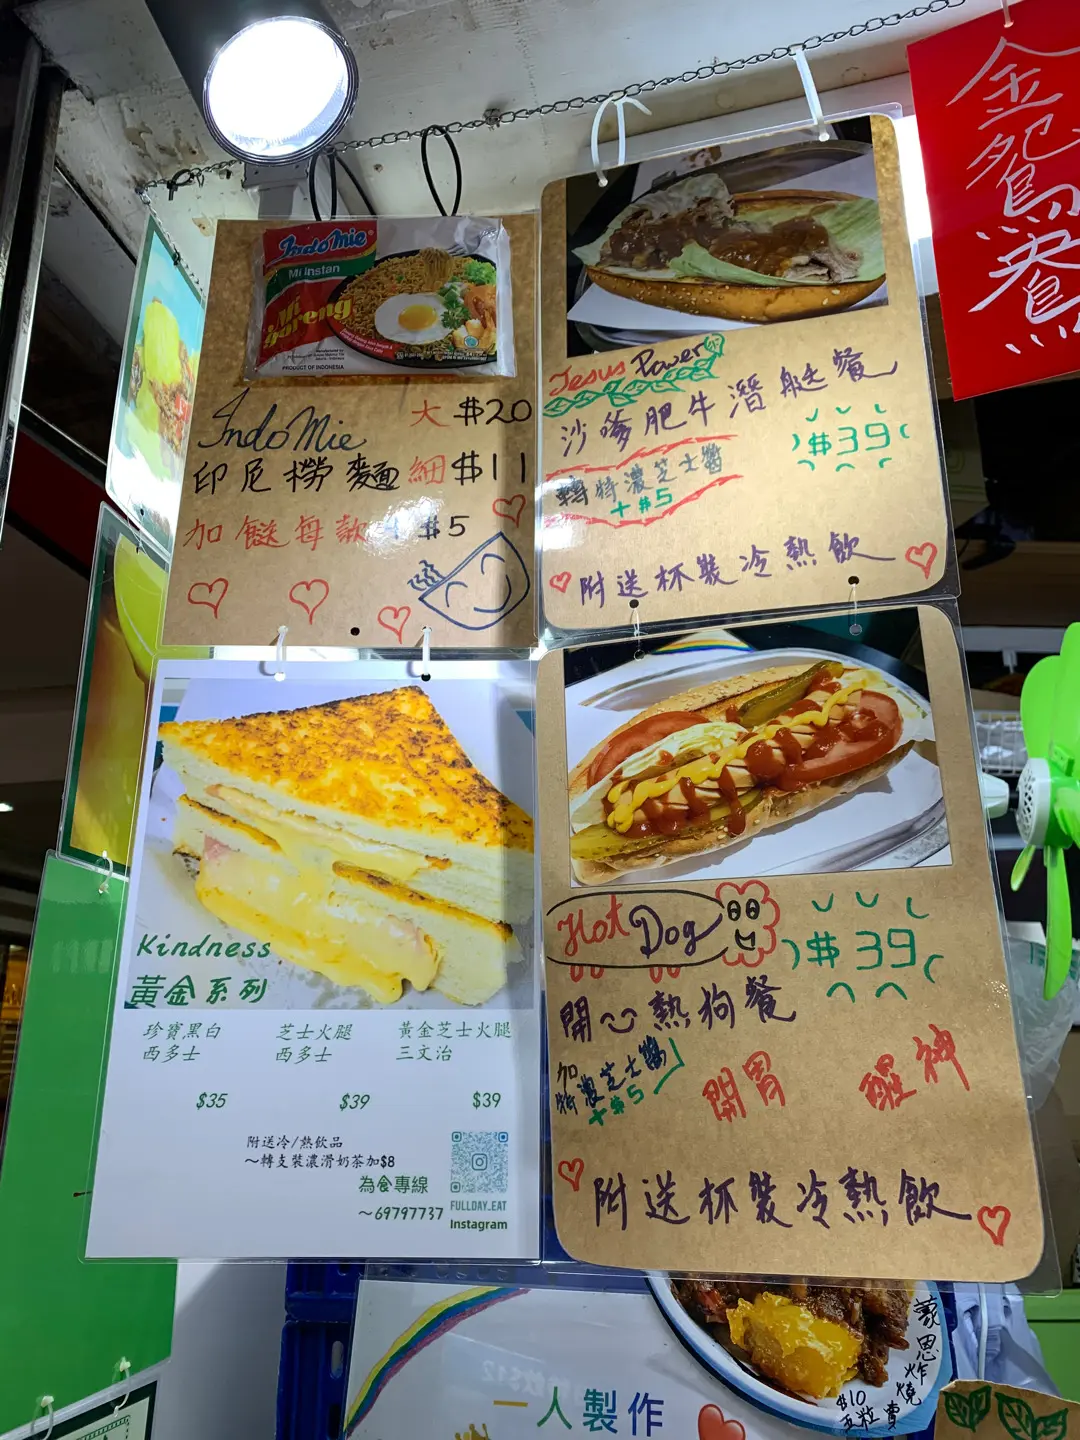 金鴛鴦
IndoMie
Mi Instan
Mi goreng
PRODUCT OF INDONESIA
IndoMie
大 $20
印尼撈麵 細 $11
加餸每款 $5
Jesus Power
沙嗲肥牛潛艇餐
$39
轉特濃芝士醬
+$5
附送杯裝冷熱飲
Kindness
黃金系列
珍寶黑白
西多士
$35
芝士火腿
西多士
$39
黃金芝士火腿
三文治
$39
附送冷/熱飲品
~轉支裝濃滑奶茶加$8
為食專線
~69797737
FULLDAY_EAT
Instagram
Hot Dog
$39
開心熱狗餐
加
特濃芝士醬
+$5
開胃
醒神
附送杯裝冷熱飲
一人製作
蒙恩炸燒賣
$10
五粒